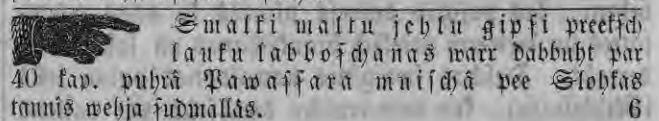 Smalki maltu jehlu gipsi preeksch
lauku labboschanas warr dabbuht par
40 kap. puhrâ Pawassara muischâ pee Slohkas
tannîs wehja sudmallâs. 6